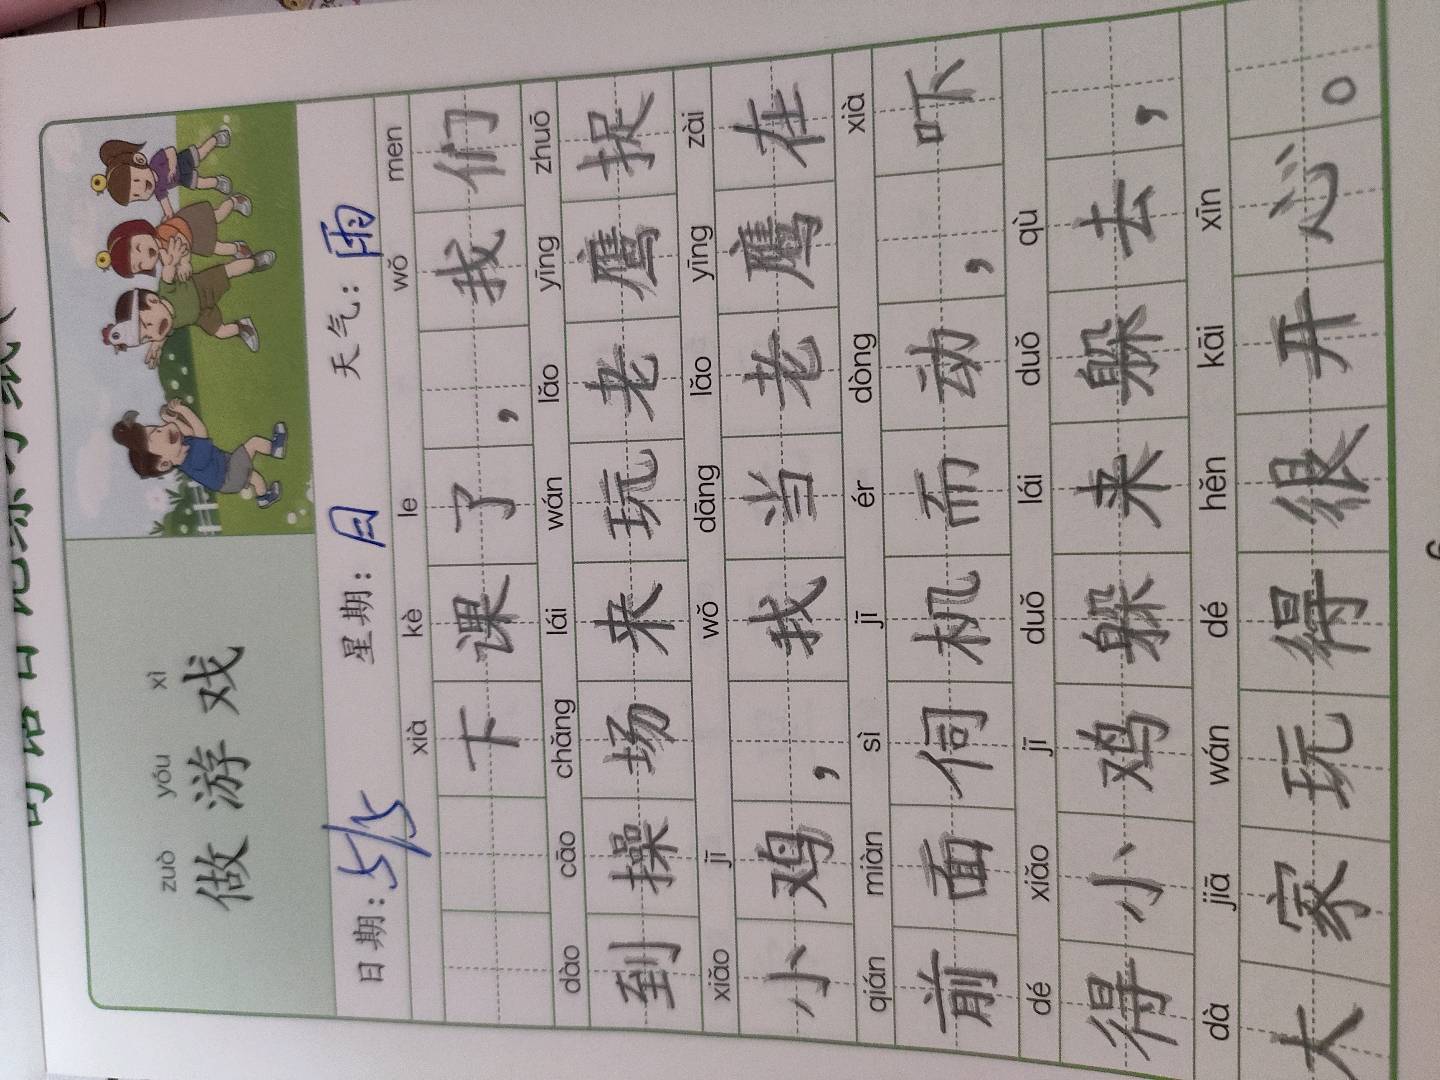 zuò yóu xì
做游戏
日期：5/5 星期：日 天气：雨
xià kè le wǒ men
下课了，我们
dào cāo chǎng lái wán lǎo yīng zhuō
到操场来玩老鹰捉
xiǎo jī wǒ dāng lǎo yīng zài
小鸡，我当老鹰在
qián miàn sì jī ér dòng xià
前面伺机而动，吓
dé xiǎo jī duǒ lái duǒ qù
得小鸡躲来躲去，
dà jiā wán dé hěn kāi xīn
大家玩得很开心。